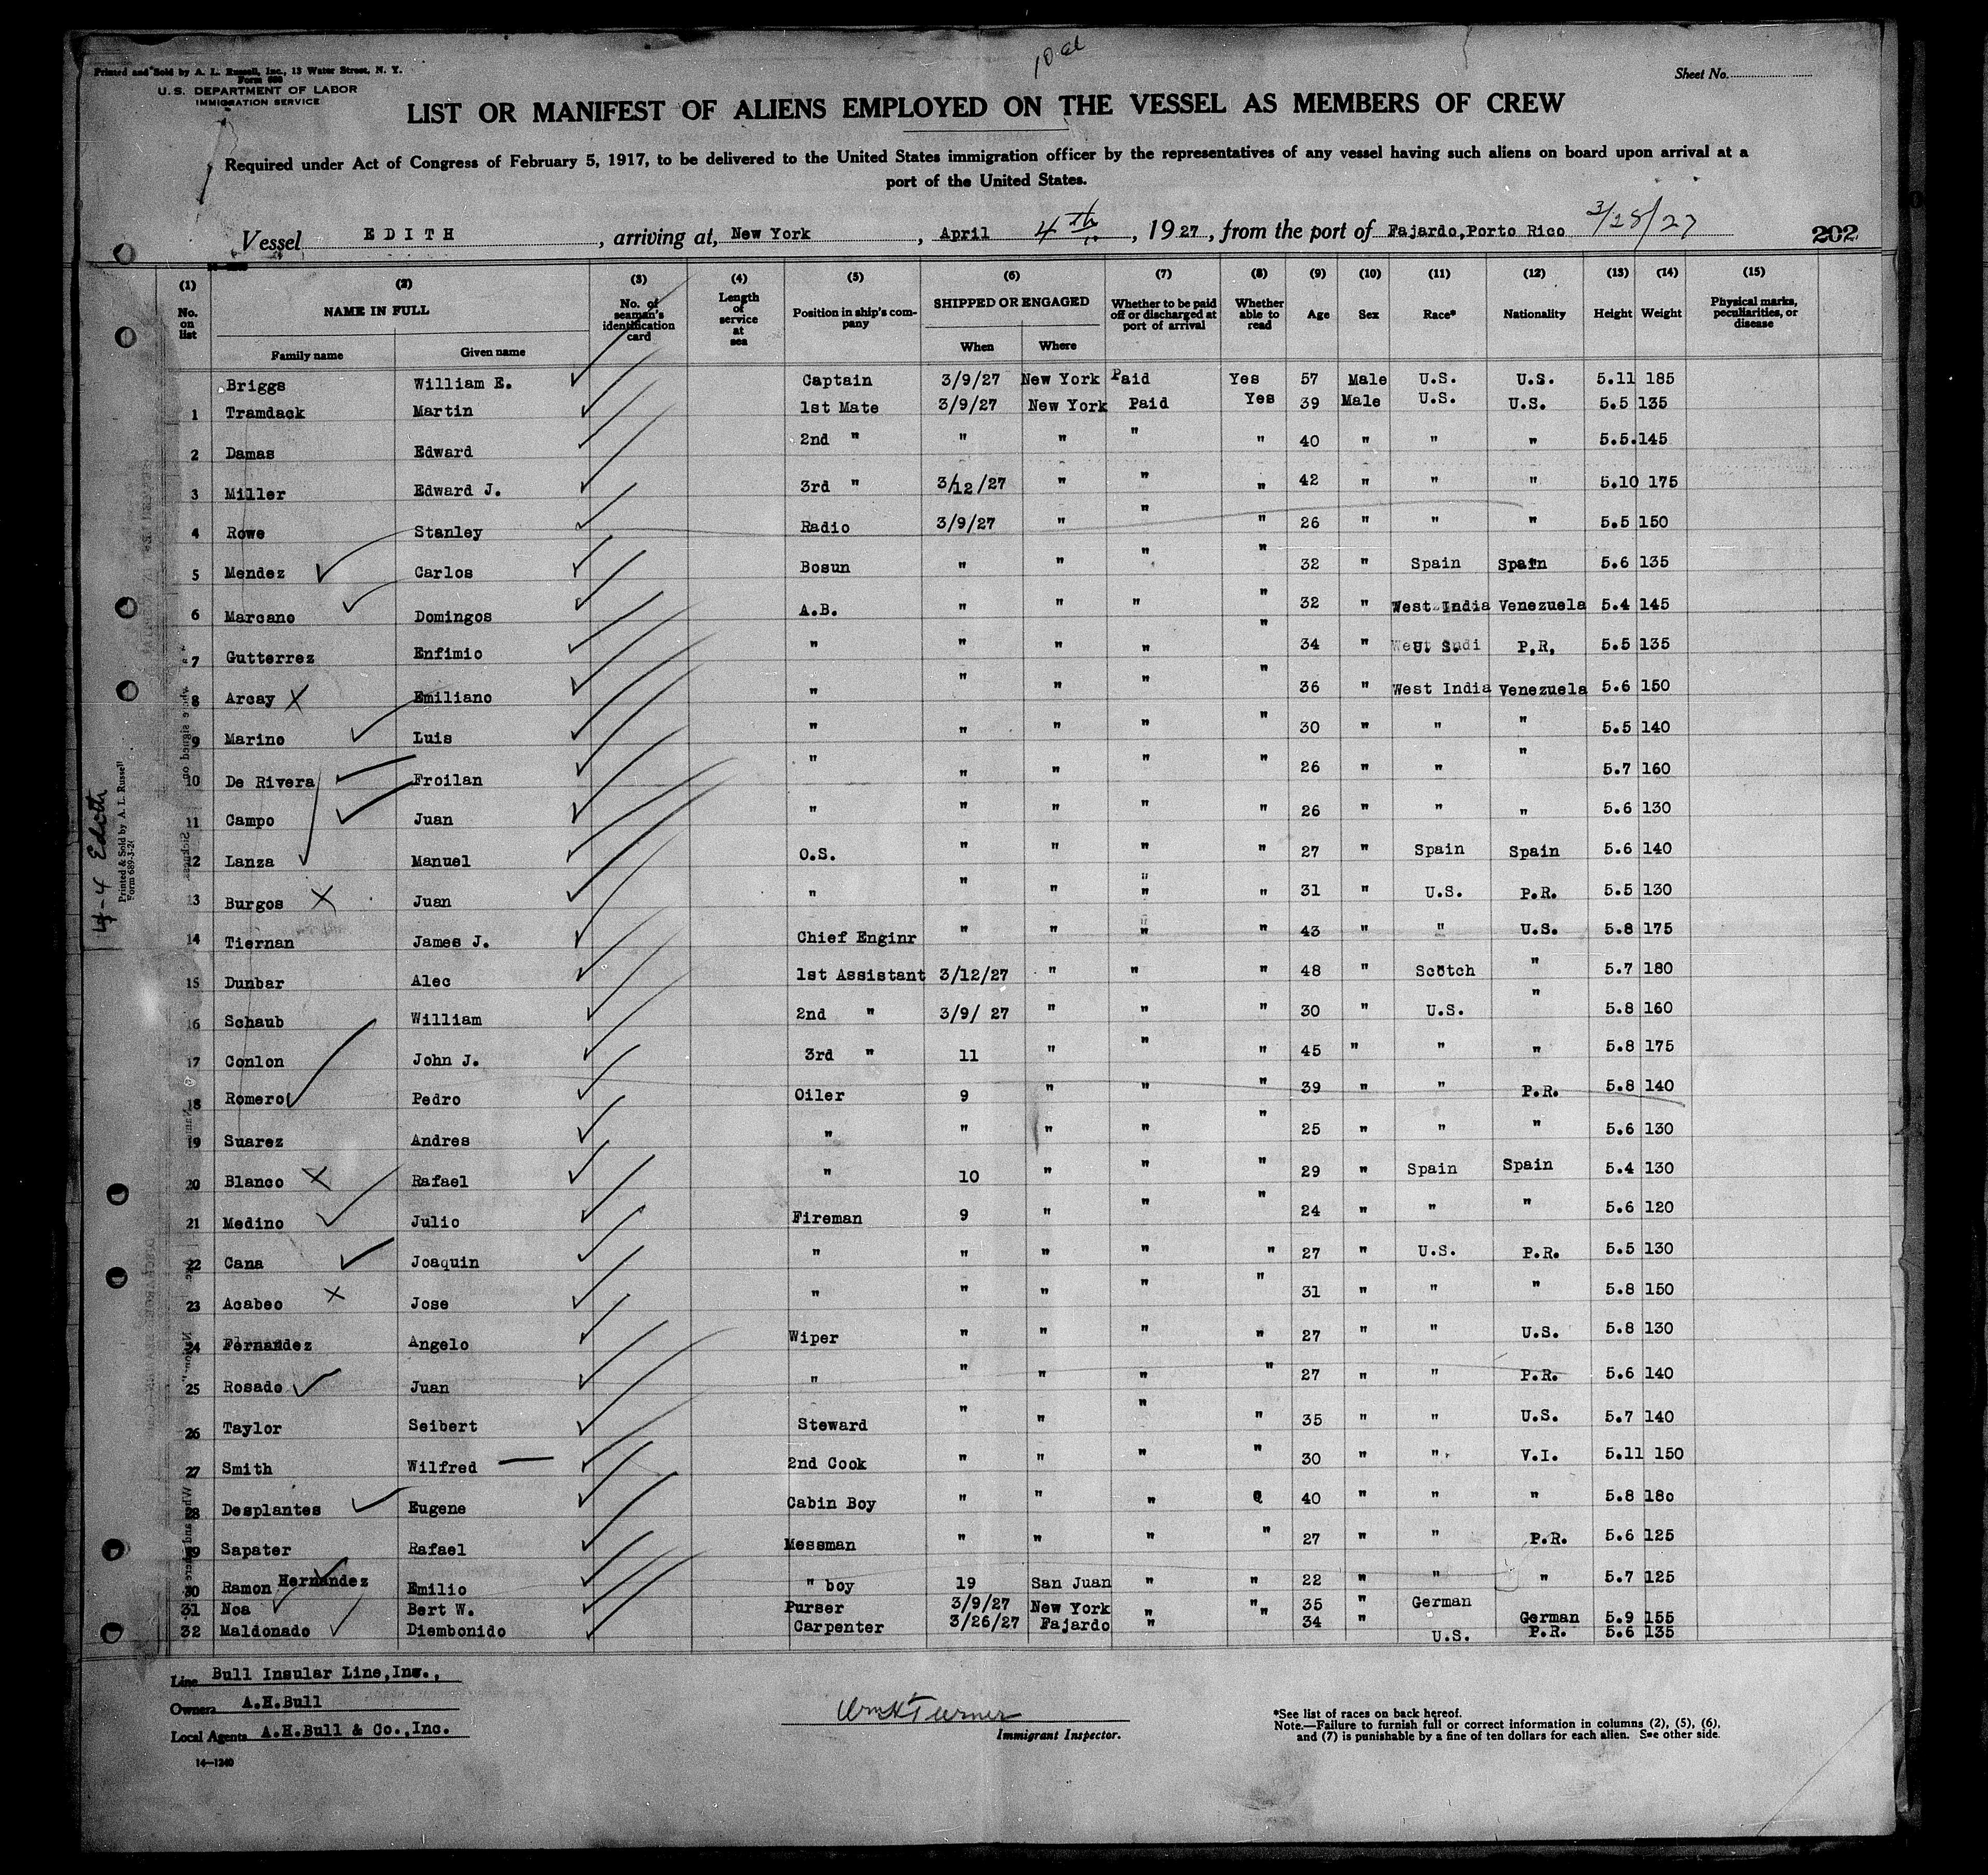 10 al
Printed and Sold by A. L. Russell, Inc., 13 Water Street, N. Y.
Form 689
U. S. DEPARTMENT OF LABOR
IMMIGRATION SERVICE
Sheet No.
LIST OR MANIFEST OF ALIENS EMPLOYED ON THE VESSEL AS MEMBERS OF CREW
Required under Act of Congress of February 5, 1917, to be delivered to the United States immigration officer by the representatives of any vessel having such aliens on board upon arrival at a
port of the United States.
Vessel EDITH, arriving at, New York, April 4th, 1927, from the port of Fajardo, Porto Rico 3/28/27 202
(1) (2) (3) (4) (5) (6) (7) (8) (9) (10) (11) (12) (13) (14) (15)
No. on list NAME IN FULL No. of seaman's identification card Length of service at sea Position in ship's company SHIPPED OR ENGAGED Whether to be paid off or discharged at port of arrival Whether able to read Age Sex Race* Nationality Height Weight Physical marks, peculiarities, or disease
Family name Given name When Where
Briggs William E. Captain 3/9/27 New York Paid Yes 57 Male U.S. U.S. 5.11 185
1 Tramdack Martin 1st Mate 3/9/27 New York Paid Yes 39 Male U.S. U.S. 5.5 135
2 Damas Edward 2nd " " " " " 40 " " " 5.5. 145
3 Miller Edward J. 3rd " 3/12/27 " " " 42 " " " 5.10 175
4 Rowe Stanley Radio 3/9/27 " " " 26 " " " 5.5 150
5 Mendez Carlos Bosun " " " " 32 " Spain Spain 5.6 135
6 Marcano Domingos A.B. " " " " 32 " West India Venezuela 5.4 145
7 Gutterrez Enfimio " " " " " 34 " U. S. P.R. 5.5 135
8 Arcay X Emiliano " " " " " 36 " West India Venezuela 5.6 150
9 Marino Luis " " " " " 30 " " " 5.5 140
10 De Rivera Froilan " " " " " 26 " " " 5.7 160
11 Campo Juan " " " " " 26 " " " 5.6 130
12 Lanza Manuel O.S. " " " " 27 " Spain Spain 5.6 140
13 Burgos X Juan " " " " " 31 " U.S. P.R. 5.5 130
14 Tiernan James J. Chief Enginr " " " " 43 " " U.S. 5.8 175
15 Dunbar Alec 1st Assistant 3/12/27 " " " 48 " Scotch " 5.7 180
16 Schaub William 2nd " 3/9/ 27 " " " 30 " U.S. " 5.8 160
17 Conlon John J. 3rd " 11 " " " 45 " " " 5.8 175
18 Romero Pedro Oiler 9 " " " 39 " " P.R. 5.8 140
19 Suarez Andres " " " " 25 " " " 5.6 130
20 Blanco X Rafael " 10 " " " 29 " Spain Spain 5.4 130
21 Medino Julio Fireman 9 " " " 24 " " " 5.6 120
22 Cana Joaquin " " " " " 27 " U.S. P.R. 5.5 130
23 Acabeo X Jose " " " " " 31 " " " 5.8 150
24 Fernandez Angelo Wiper " " " " 27 " " U.S. 5.8 130
25 Rosado Juan " " " " " 27 " " P.R. 5.6 140
26 Taylor Seibert Steward " " " " 35 " " U.S. 5.7 140
27 Smith Wilfred 2nd Cook " " " " 30 " " V.I. 5.11 150
28 Desplantes Eugene Cabin Boy " " " 40 " " " 5.8 180
29 Sapater Rafael Messman " " " " 27 " " P.R. 5.6 125
30 Ramon Hernandez Emilio " boy 19 San Juan " " 22 " " " 5.7 125
31 Noa Bert W. Purser 3/9/27 New York " " 35 " German German 5.9 155
32 Maldonado Diembonido Carpenter 3/26/27 Fajardo " " 34 " U.S. P.R. 5.6 135
4-4 Edith
Printed & Sold by A. L. Russell
Form 689-3-26
Line Bull Insular Line, Inc.,
Owners A.H.Bull
Local Agents A.H.Bull & Co., Inc.
14-1240
Wm H Turner
Immigrant Inspector.
*See list of races on back hereof.
Note.—Failure to furnish full or correct information in columns (2), (5), (6),
and (7) is punishable by a fine of ten dollars for each alien. See other side.